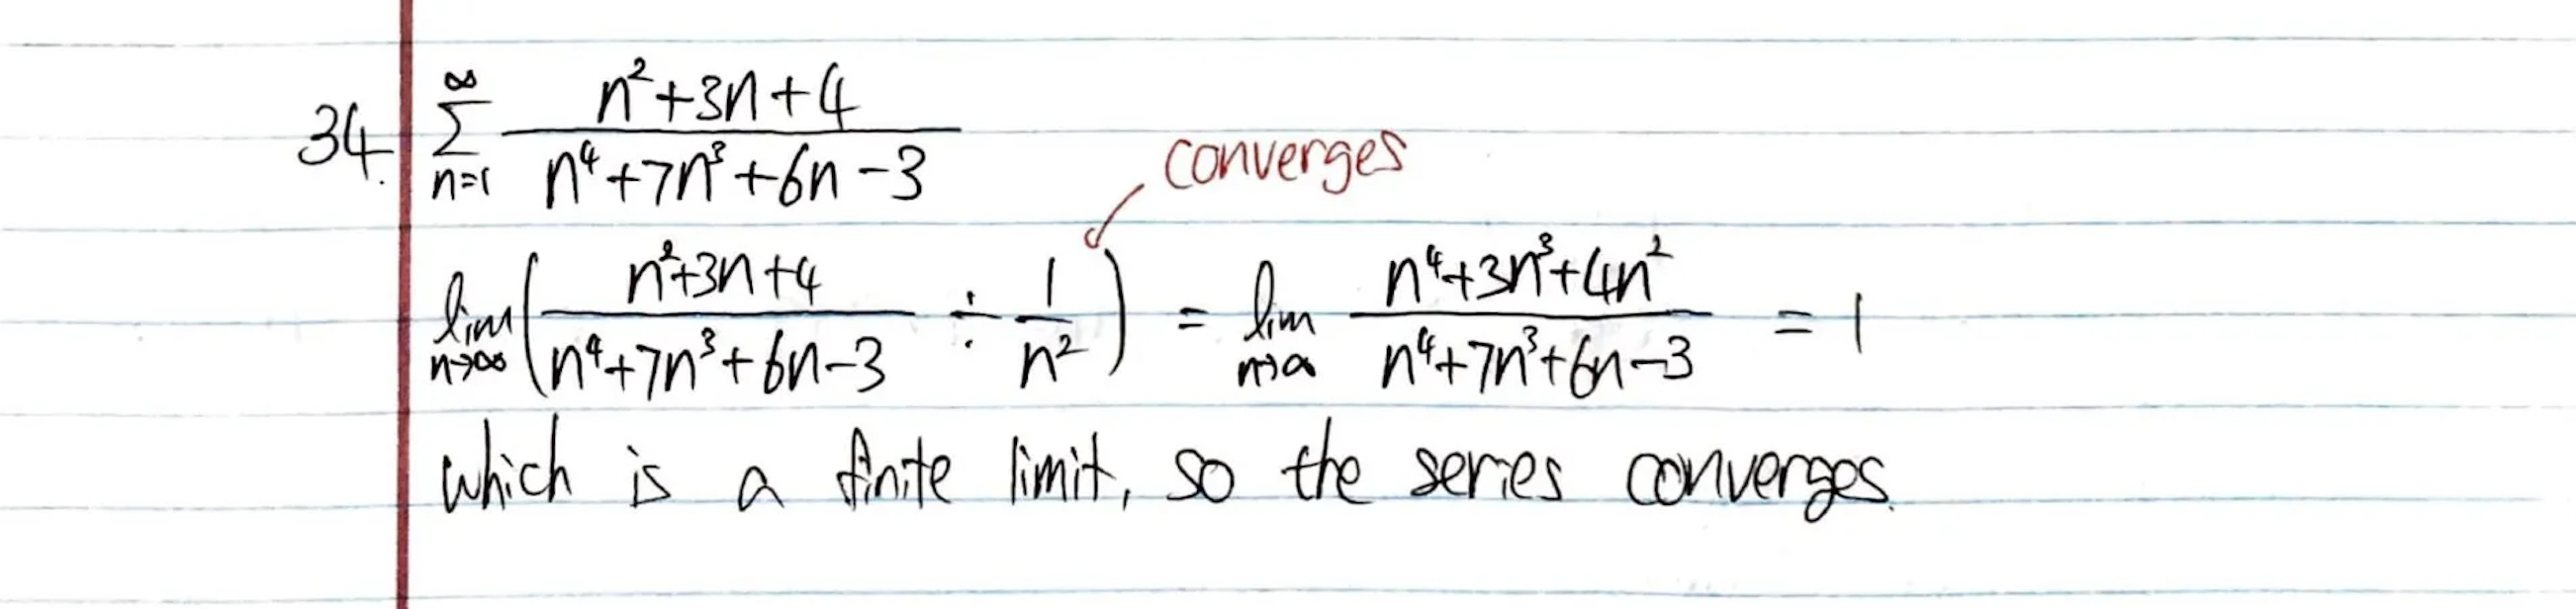 34. ∞∑n=1 (n²+3n+4)/(n⁴+7n³+6n−3)
converges
lim n→∞ ( (n²+3n+4)/(n⁴+7n³+6n−3) ÷ 1/n² ) = lim n→∞ (n⁴+3n³+4n²)/(n⁴+7n³+6n−3) = 1
which is a finite limit, so the series converges.